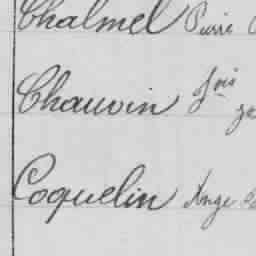 Chalmel Pierre
Chauvin fois
Coquelin Ange